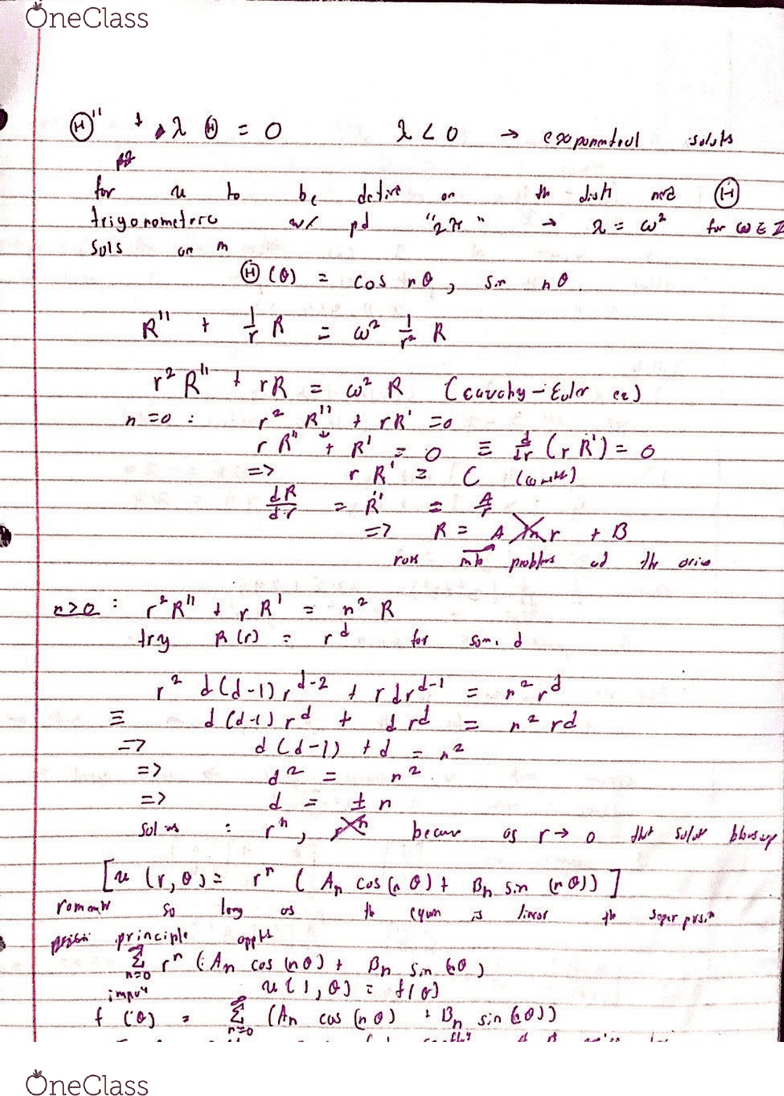 OneClass
Θ'' + λ Θ = 0 λ < 0 → exponential soluts
for u to be define on the disk need Θ
trigonometric w/ pd "2π" → λ = ω² for ω ∈ Z
Sols on
Θ(θ) = cos nθ, sin nθ.
R'' + 1/r R = ω² 1/r² R
r² R'' + rR = ω² R (Cauchy-Euler ee)
n=0 : r² R'' + rR' = 0
r R'' + R' = 0 ≡ d/dr (r R') = 0
=> r R' = C
dR/dr = R' = A/r
=> R = A ln r + B
runs into problems at the
n>0 : r²R'' + rR' = n² R
try R(r) = r^d for som. d
r² d(d-1)r^d-2 + rdr^d-1 = n² r^d
≡ d(d-1)r^d + dr^d = n² r^d
=> d(d-1) + d = n²
=> d² = n².
=> d = ± n
sol ns : r^n, becaus as r → 0 that solut blows up
[u(r,θ) = r^n (An cos(nθ) + Bn sin(nθ))]
so long as the equn is linear the
principle
Σ n=0 r^n (An cos(nθ) + Bn sin
u(1,θ) = f(θ)
f(θ) = Σ ∞ n=0 (An cos(nθ) + Bn sin(nθ))
OneClass